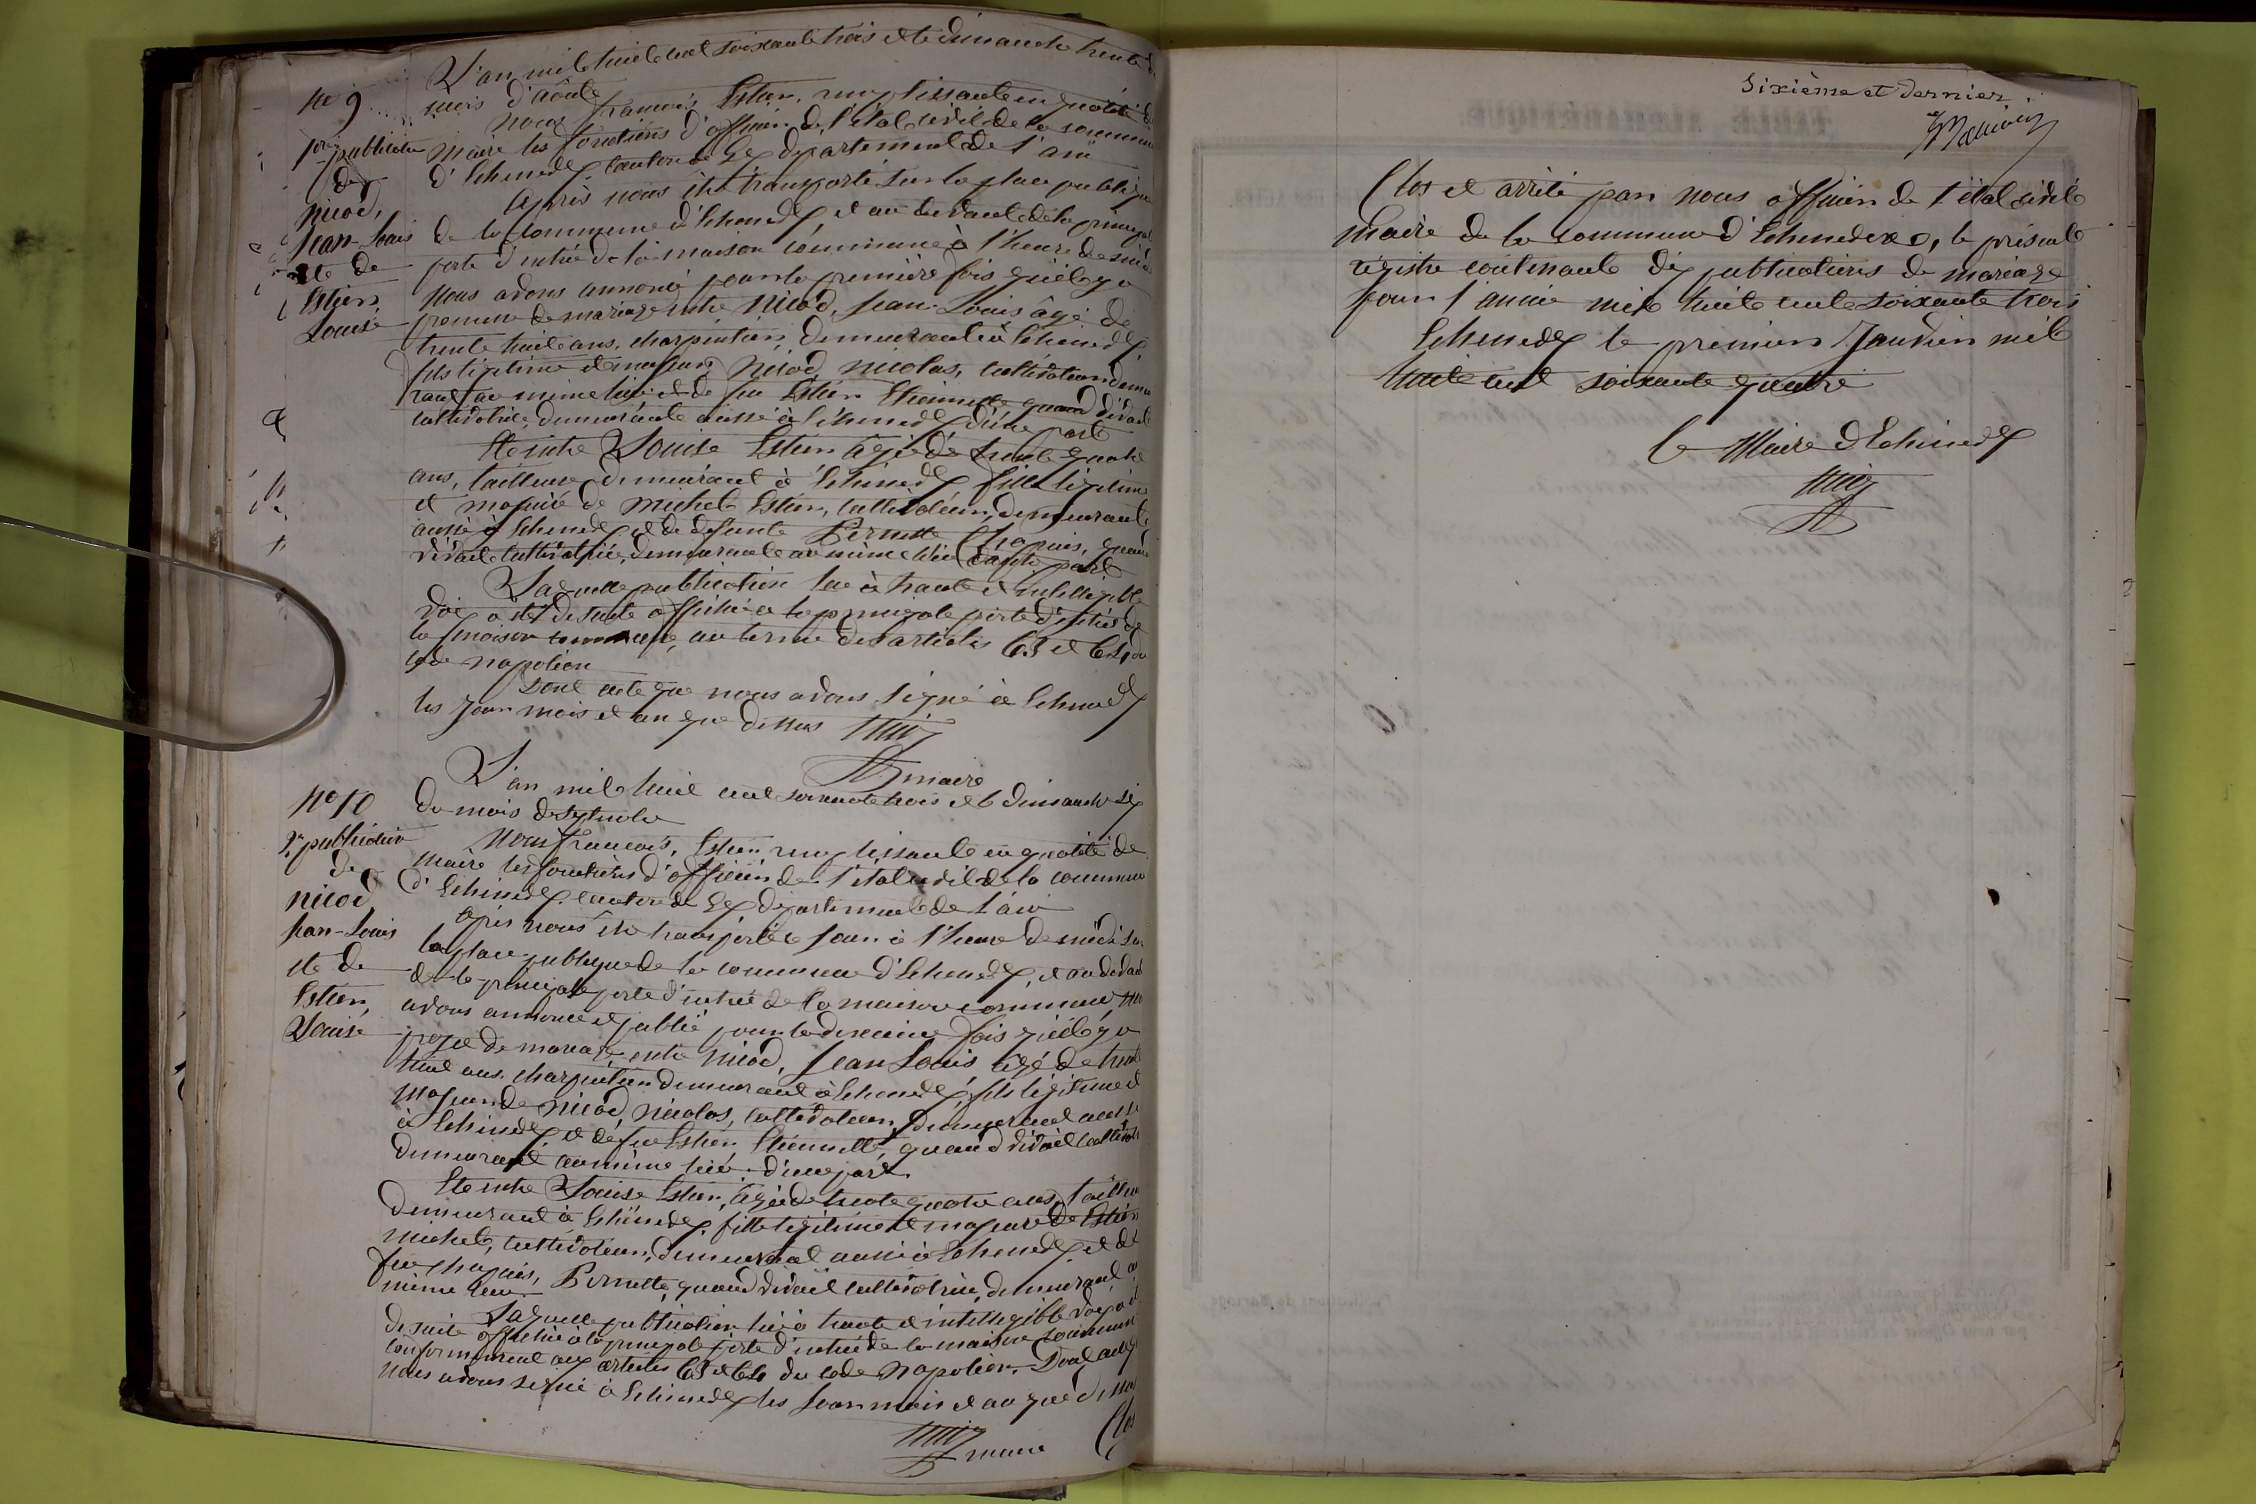 L'an mil huit cent soixante trois et le dimanche trente du
mois d'aôut
No 9
1re publication
de
Nicod,
Jean-Louis
et de
Estier,
Louise
Nous François Estier, remplissant en qualité de
maire les fonctions d'officier de l'état civil de la commune
d'Echenedex canton de Gex département de l'ain
Après nous être transporté sur la place publique
de la commune d'Echenedex, et au devant de la principale
porte d'entrée de la maison commune à l'heure de midi
Nous avons annoncé pour la première fois qu'il y a
promesse de mariage entre Nicod, Jean-Louis âgé de
trente huit ans, charpentier, demeurant à Echenedex,
fils légitime et majeur de Nicod, Nicolas, cultivateur demeu
rant au même lieu et de feu Estier Etiennette quand vivait
cultivatrice, demeurante aussi à Echenedex, d'une part
Et entre Louise Estier âgée de trente quatre
ans, tailleuse demeurant à Echenedex fille légitime
et majeure de Michel Estier, cultivateur, demeurant
aussi à Echenedex et de défunte Pernette Chapuis, quand
vivait cultivatrice, demeurante au même lieu d'autre part
Laquelle publication lue à haute et intelligible
voix a été de suite affichée à la principale porte d'entrée de
la maison commune, au terme des articles 63 et 64 du
code napoléon
Dont acte que nous avons signé à Echenedex
les jour mois et an que dessus
maire
No 10
2e publication
de
Nicod
Jean-Louis
et de
Estier,
Louise
L'an mil huit cent soixante trois et le dimanche six
du mois de septembre
Nous François, Estier remplissant en qualité de
maire les fonctions d'officier de l'état civil de la commune
d'Echenedex canton de Gex département de l'ain
Après nous être transporté ce jour à l'heure de midi sur
la place publique de la commune d'Echenedex, et au devant
de la principale porte d'entrée de la maison commune,
avons annoncé et publié pour la deuxième fois qu'il y a
projet de mariage entre Nicod, Jean Louis, âgé de trente
huit ans, charpentier demeurant à Echenedex, fils légitime et
majeur de Nicod, Nicolas, cultivateur, demeurant aussi
à Echenedex, et de feu Estier Etiennette, quand vivait cultivatrice
demeurant au même lieu d'une part
Et entre Louise Estier, âgée de trente quatre ans, tailleuse
demeurant à Echenedex, fille légitime et majeure de Estier
Michel, cultivateur, demeurant aussi à Echenedex et de
feu Chapuis, Pernette, quand vivait cultivatrice, demeurant au
même lieu.
Laquelle publication lue à haute et intelligible voix a été
de suite affichée à la principale porte d'entrée de la maison commune
conformément aux articles 63 et 64 du code Napoléon. Dont acte que
nous avons signé à Echenedex les jour mois et an que dessus
maire
Clos
Sixième et dernier.
Clos et arrêté par nous officier de l'état civil
Maire de la commune d'Echenedex, le présent
régistre contenant dix publications de mariage
pour l'année mil huit cent soixante trois
Echenedex le premier Janvier mil
huit cent soixante quatre
le Maire d'Echenedex